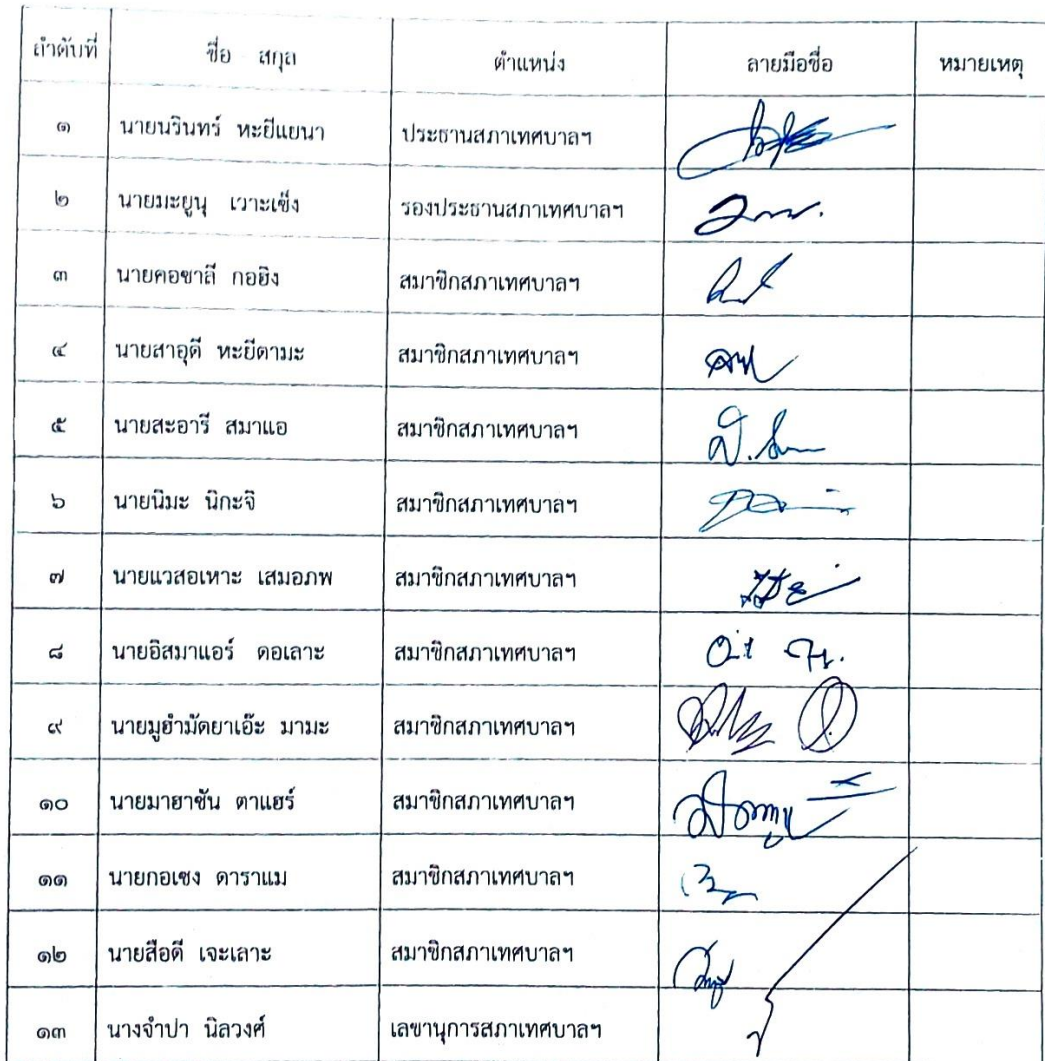 ลำดับที่ ชื่อ สกุล ตำแหน่ง ลายมือชื่อ หมายเหตุ
๑ นายนรินทร์ หะยีแยนา ประธานสภาเทศบาลฯ
๒ นายมะยูนุ เวาะเซ็ง รองประธานสภาเทศบาลฯ
๓ นายคอซาลี กอฮิง สมาชิกสภาเทศบาลฯ
๔ นายสาอุดี หะยีตามะ สมาชิกสภาเทศบาลฯ
๕ นายสะอารี สมาแอ สมาชิกสภาเทศบาลฯ
๖ นายนิมะ นิกะจิ สมาชิกสภาเทศบาลฯ
๗ นายแวสอเหาะ เสมอภพ สมาชิกสภาเทศบาลฯ
๘ นายอิสมาแอร์ ดอเลาะ สมาชิกสภาเทศบาลฯ
๙ นายมูฮำมัดยาเอ๊ะ มามะ สมาชิกสภาเทศบาลฯ
๑๐ นายมาฮาซัน ตาแฮร์ สมาชิกสภาเทศบาลฯ
๑๑ นายกอเซง ดาราแม สมาชิกสภาเทศบาลฯ
๑๒ นายสือดี เจะเลาะ สมาชิกสภาเทศบาลฯ
๑๓ นางจำปา นิลวงศ์ เลขานุการสภาเทศบาลฯ